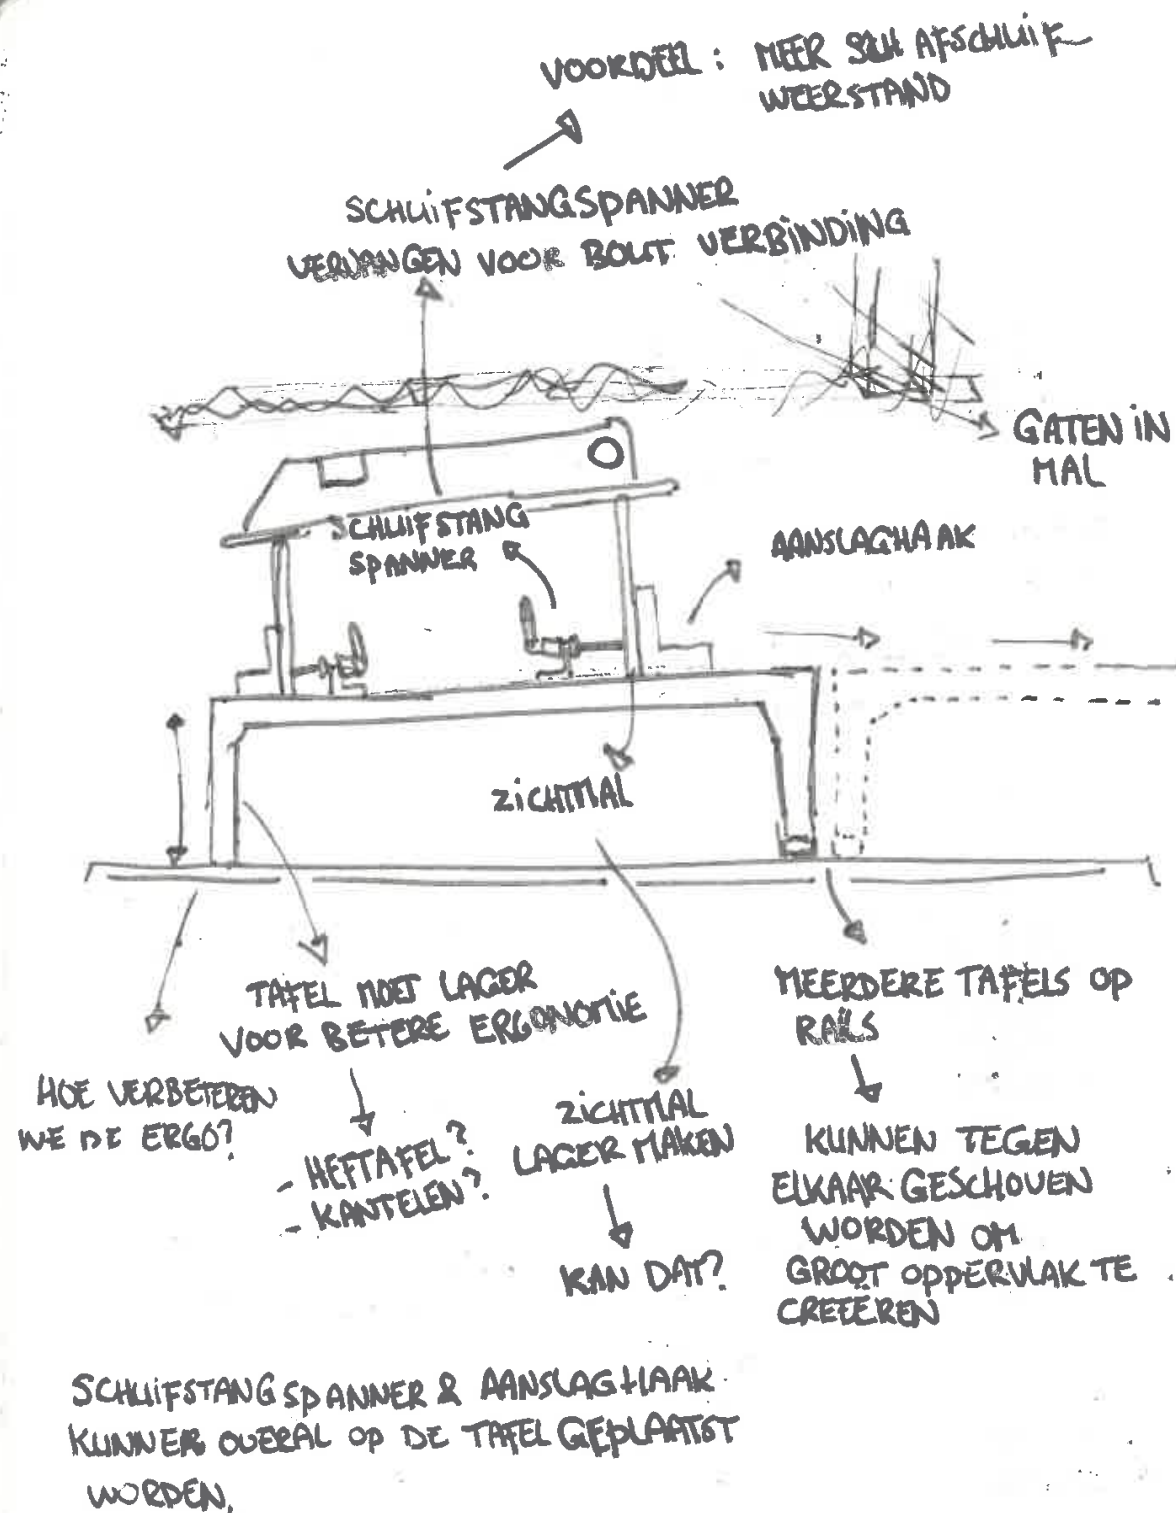 VOORDEEL : MEER AFSCHUIF
WEERSTAND
SCHUIFSTANGSPANNER
VERVANGEN VOOR BOUT VERBINDING
GATEN IN
MAL
SCHUIFSTANG
SPANNER
AANSLAGHAAK
ZICHTMAL
TAFEL MOET LAGER
VOOR BETERE ERGONOMIE
MEERDERE TAFELS OP
RAILS
HOE VERBETEREN
WE DE ERGO?
- HEFTAFEL?
- KANTELEN?
ZICHTMAL
LAGER MAKEN
KAN DAT?
KUNNEN TEGEN
ELKAAR GESCHOVEN
WORDEN OM
GROOT OPPERVLAK TE
CREEËREN
SCHUIFSTANGSPANNER & AANSLAGHAAK
KUNNEN OVERAL OP DE TAFEL GEPLAATST
WORDEN.